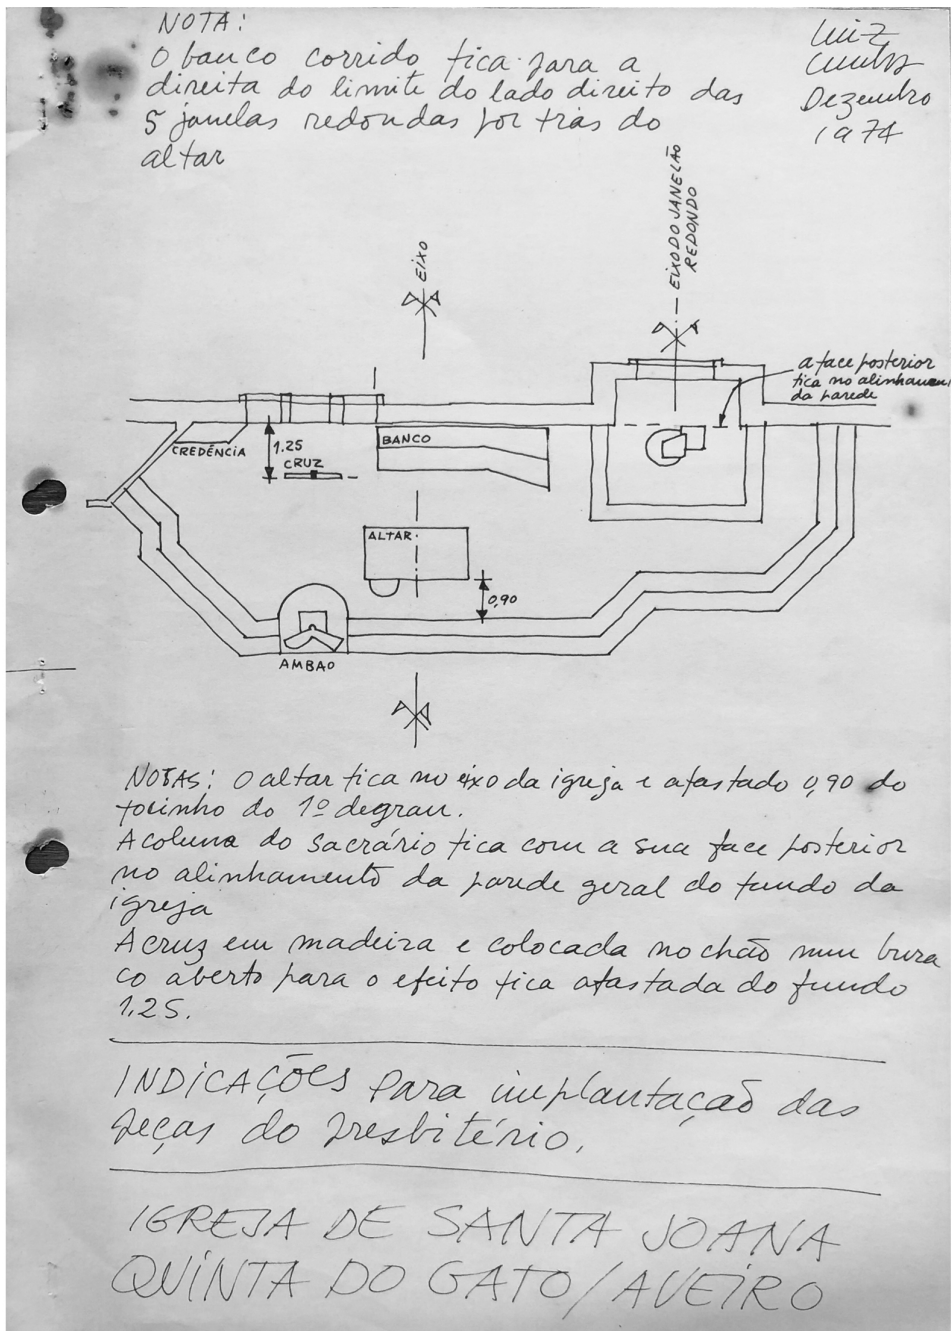 NOTA:
O banco corrido fica para a
direita do limite do lado direito das
5 janelas redondas por trás do
altar
Luiz
Cunha
Dezembro
1974
EIXO
EIXO DO JANELÃO
REDONDO
a face posterior
fica no alinhamen
da parede
CREDÊNCIA
1.25
CRUZ
BANCO
ALTAR
0,90
AMBAO
NOTAS: O altar fica no eixo da igreja e afastado 0,90 do
focinho do 1º degrau.
A coluna do sacrário fica com a sua face posterior
no alinhamento da parede geral do fundo da
igreja
A cruz em madeira e colocada no chão num bura
co aberto para o efeito fica afastada do fundo
1.25.
INDICAÇÕES para implantação das
peças do presbitério.
IGREJA DE SANTA JOANA
QUINTA DO GATO/AVEIRO